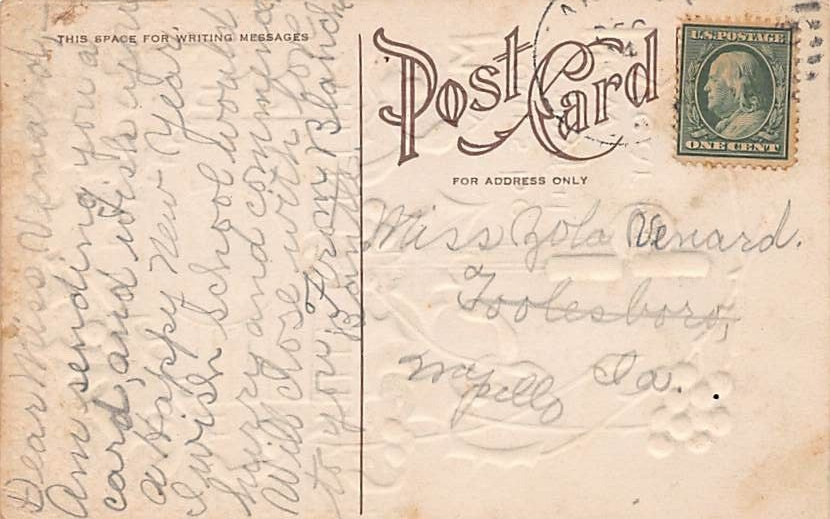 THIS SPACE FOR WRITING MESSAGES
Dear Miss Venard,
Am sending you a
card, and wish you
a Happy New Year.
I wish school would
hurry and commence
Will close with love
to you. From Blanch
Post Card
FOR ADDRESS ONLY
U.S. POSTAGE
ONE CENT
Miss Zola Venard.
Toolesboro,
Wapello Ia.